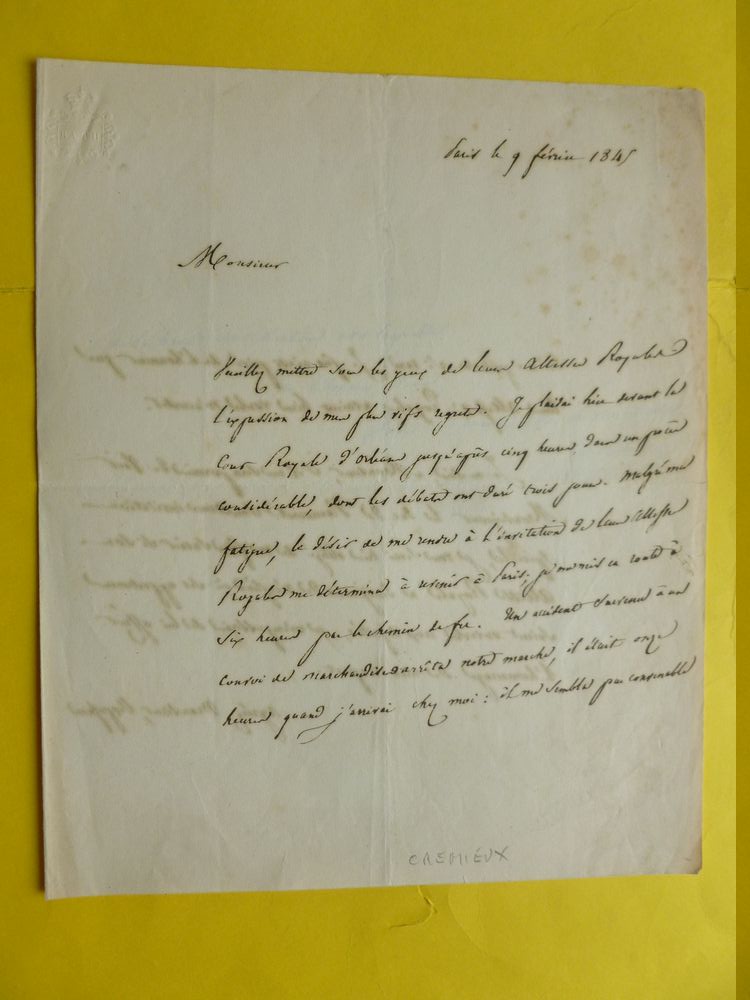 Paris le 9 février 1845
Monsieur
Veuillez mettre sous les yeux de leurs Altesses Royales
l'expression de mes plus vifs regrets. Je plaidai hier devant la
Cour Royale d'Orléans jusqu'après cinq heures, dans un procès
considérable, dont les débats ont duré trois jours. Malgré ma
fatigue, le désir de me rendre à L'invitation de leurs Altesses
Royales me détermina à revenir à Paris; je me mis en route à
Six heures par le chemin de fer. Un accident survenu à un
convoi de marchandises arrêta notre marche, il était onze
heures quand j'arrivai chez moi : il me sembla peu convenable
CREMIEUX